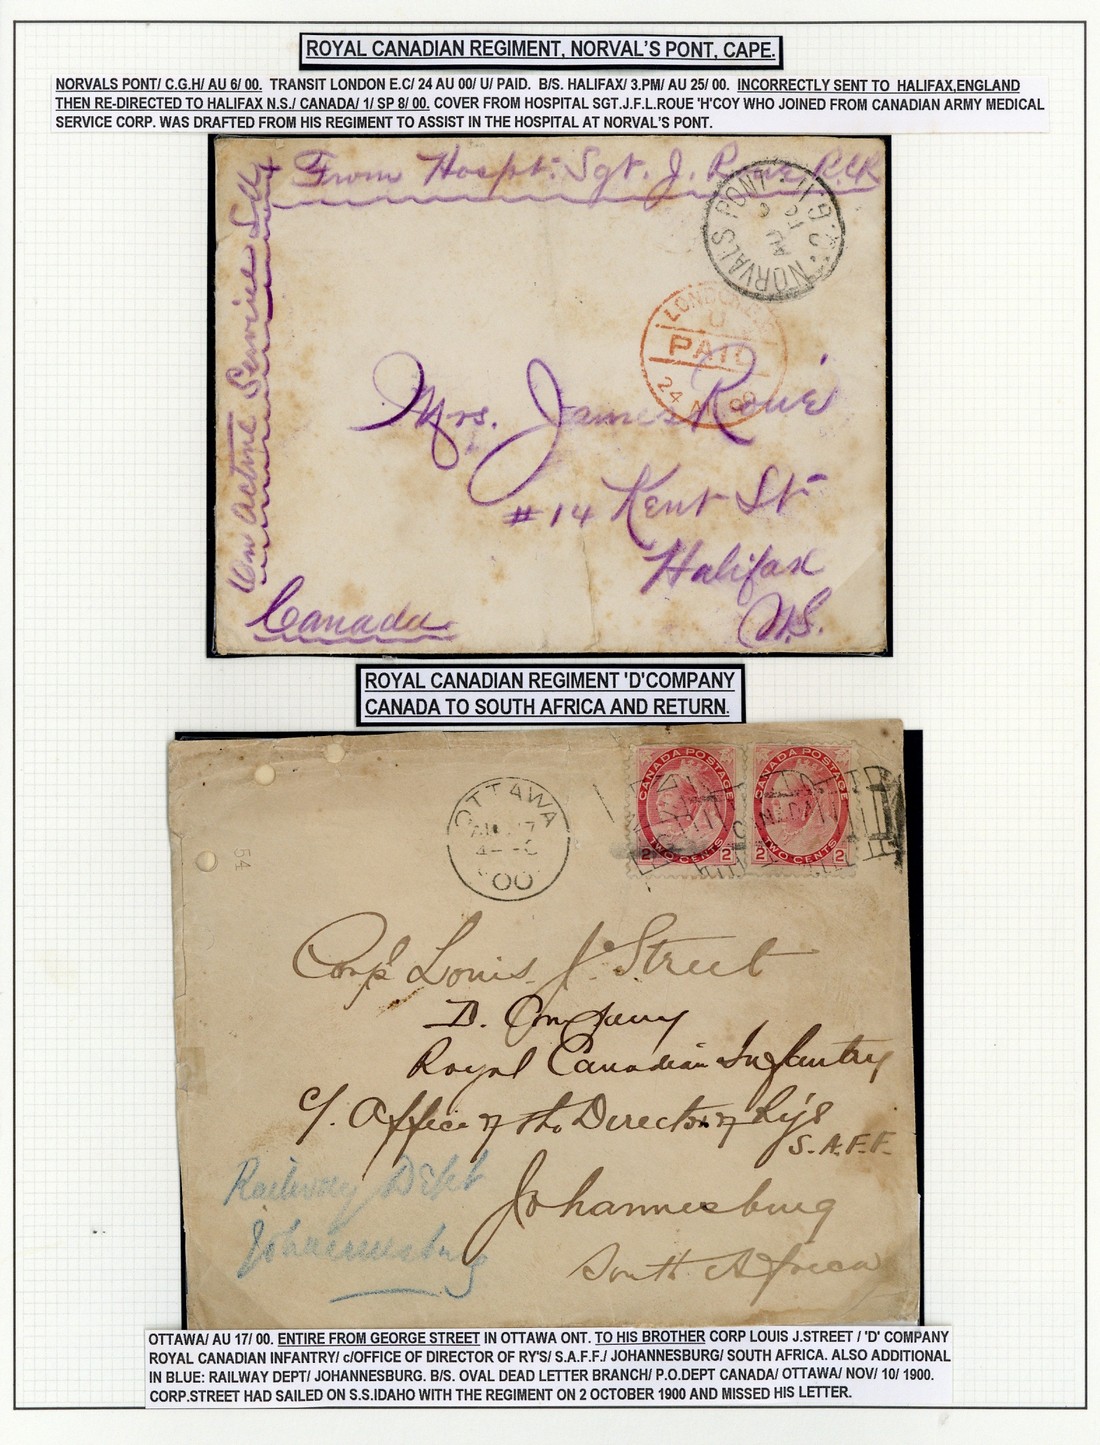 ROYAL CANADIAN REGIMENT, NORVAL'S PONT, CAPE.
NORVALS PONT/ C.G.H/ AU 6/ 00. TRANSIT LONDON E.C/ 24 AU 00/ U/ PAID. B/S. HALIFAX/ 3.PM/ AU 25/ 00. INCORRECTLY SENT TO HALIFAX,ENGLAND
THEN RE-DIRECTED TO HALIFAX N.S./ CANADA/ 1/ SP 8/ 00. COVER FROM HOSPITAL SGT.J.F.L.ROUE 'H'COY WHO JOINED FROM CANADIAN ARMY MEDICAL
SERVICE CORP. WAS DRAFTED FROM HIS REGIMENT TO ASSIST IN THE HOSPITAL AT NORVAL'S PONT.
From Hospt. Sgt. J. Roue R.C.R
On Active Service
NORVALS PONT
C.G.H.
AU
6
00
LONDON
U
PAID
24 AU 00
Mrs. James Roué
#14 Kent St
Halifax
N.S.
Canada
ROYAL CANADIAN REGIMENT 'D'COMPANY
CANADA TO SOUTH AFRICA AND RETURN.
OTTAWA
00
CANADA POSTAGE
2 TWO CENTS 2
CANADA POSTAGE
2 TWO CENTS 2
54
Corpl Louis J. Street
D. Company
Royal Canadian Infantry
c/. Office of the Director of Ry's
S.A.F.F.
Johannesburg
South Africa
Railway Dept
Johannesburg
OTTAWA/ AU 17/ 00. ENTIRE FROM GEORGE STREET IN OTTAWA ONT. TO HIS BROTHER CORP LOUIS J.STREET / 'D' COMPANY
ROYAL CANADIAN INFANTRY/ c/OFFICE OF DIRECTOR OF RY'S/ S.A.F.F./ JOHANNESBURG/ SOUTH AFRICA. ALSO ADDITIONAL
IN BLUE: RAILWAY DEPT/ JOHANNESBURG. B/S. OVAL DEAD LETTER BRANCH/ P.O.DEPT CANADA/ OTTAWA/ NOV/ 10/ 1900.
CORP.STREET HAD SAILED ON S.S.IDAHO WITH THE REGIMENT ON 2 OCTOBER 1900 AND MISSED HIS LETTER.